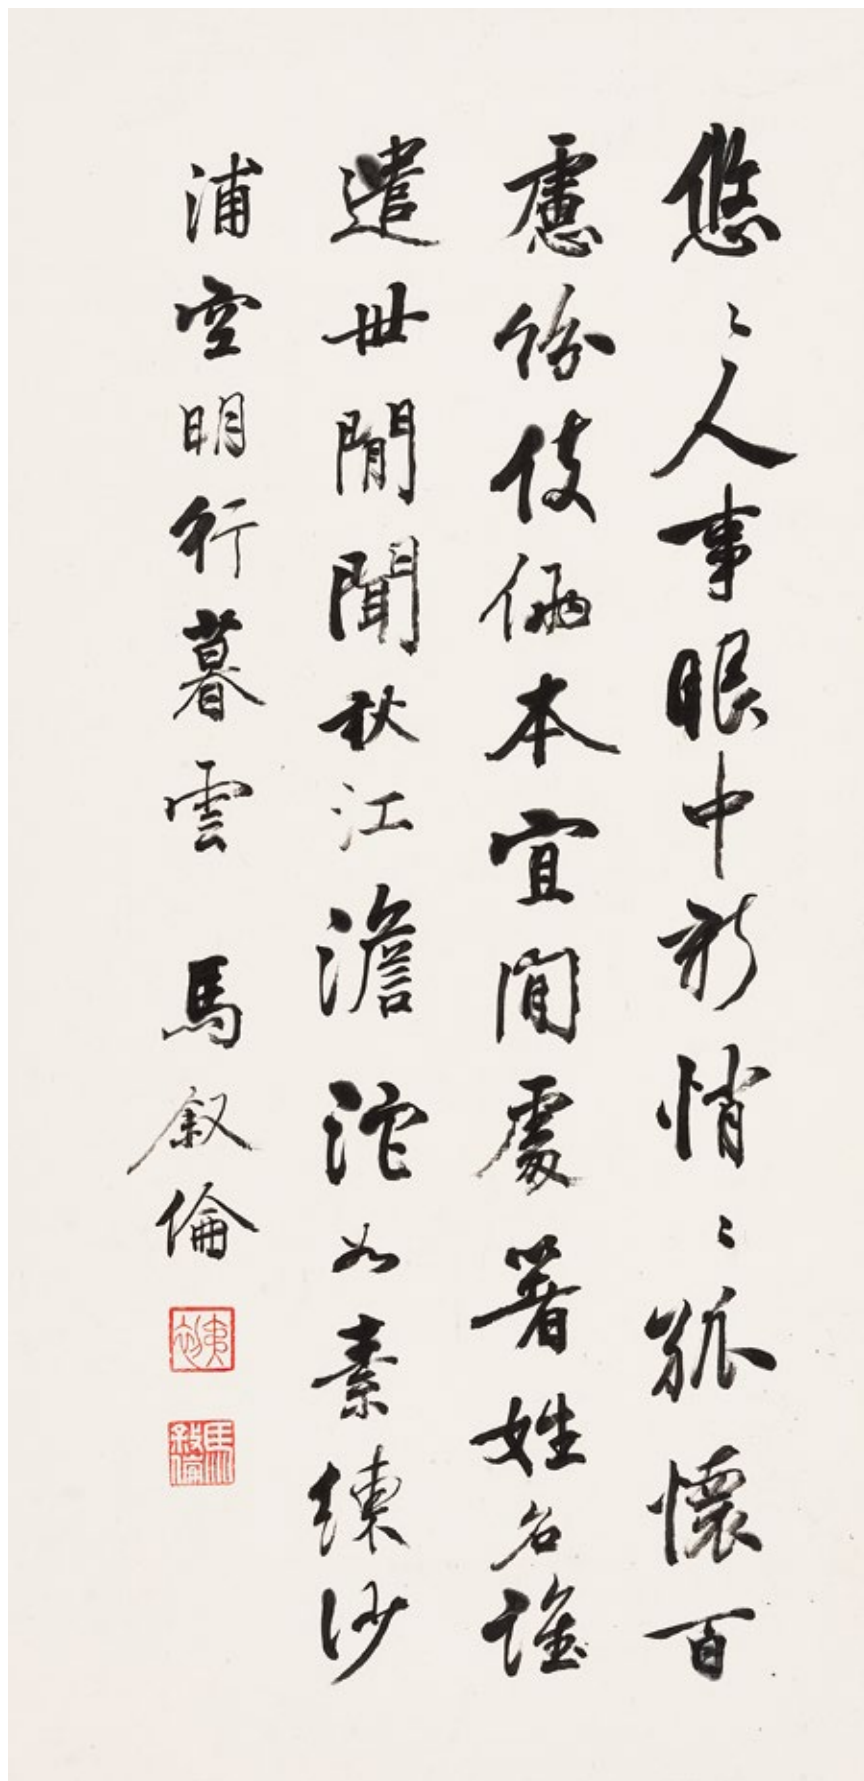 悠〻人事眼中新悄〻孤懷百
慮紛伎倆本宜閒處著姓名誰
遣世間聞秋江澹沱如素練沙
浦空明行暮雲 馬叙倫
夷初
馬叙倫